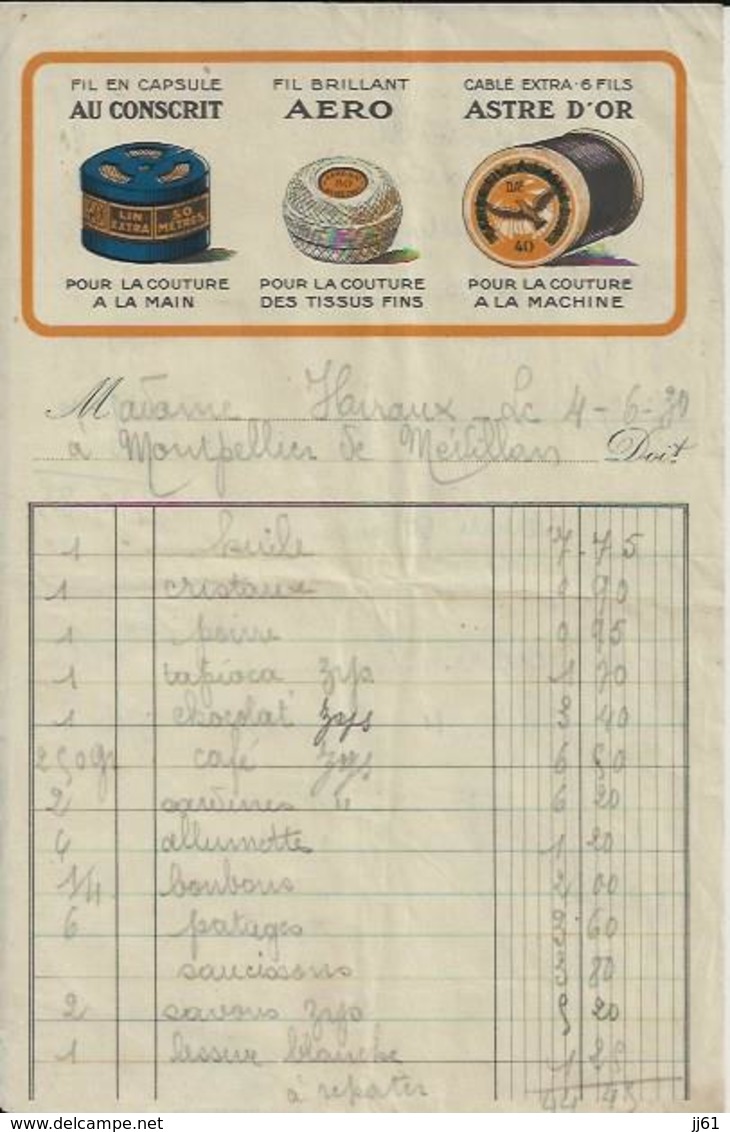 FIL EN CAPSULE
AU CONSCRIT
LIN EXTRA 50 MÈTRES
POUR LA COUTURE
A LA MAIN
FIL BRILLANT
AERO
80
POUR LA COUTURE
DES TISSUS FINS
CABLÉ EXTRA·6 FILS
ASTRE D'OR
40
POUR LA COUTURE
A LA MACHINE
Madame Hairaux Le 4-6-30
à Montpellier de Médillan Doit
1 huile 7.75
1 cristaux 0 90
1 poivre 0 95
1 tapioca 1 70
1 chocolat 3 40
250gr café 6 50
2 sardines " 6 20
6 allumettes 1 20
1/4 bonbons 2 00
6 potages 3 60
saucissons 3 80
2 savons 5 20
1 lessive blanche 1 25
à reporter 44 45
jj61
Delcampe.net